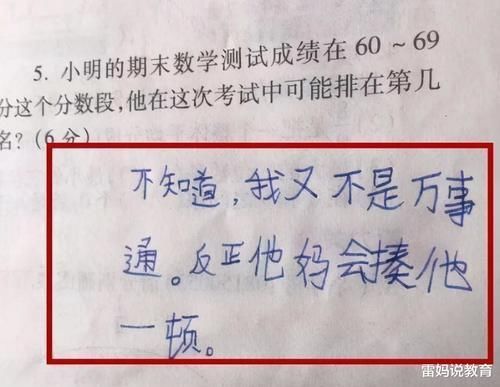 5. 小明的期末数学测试成绩在 60 ~ 69
分这个分数段,他在这次考试中可能排在第几
名? (6分)
不知道,我又不是万事
通。反正他妈会揍他
一顿。
雷妈说教育